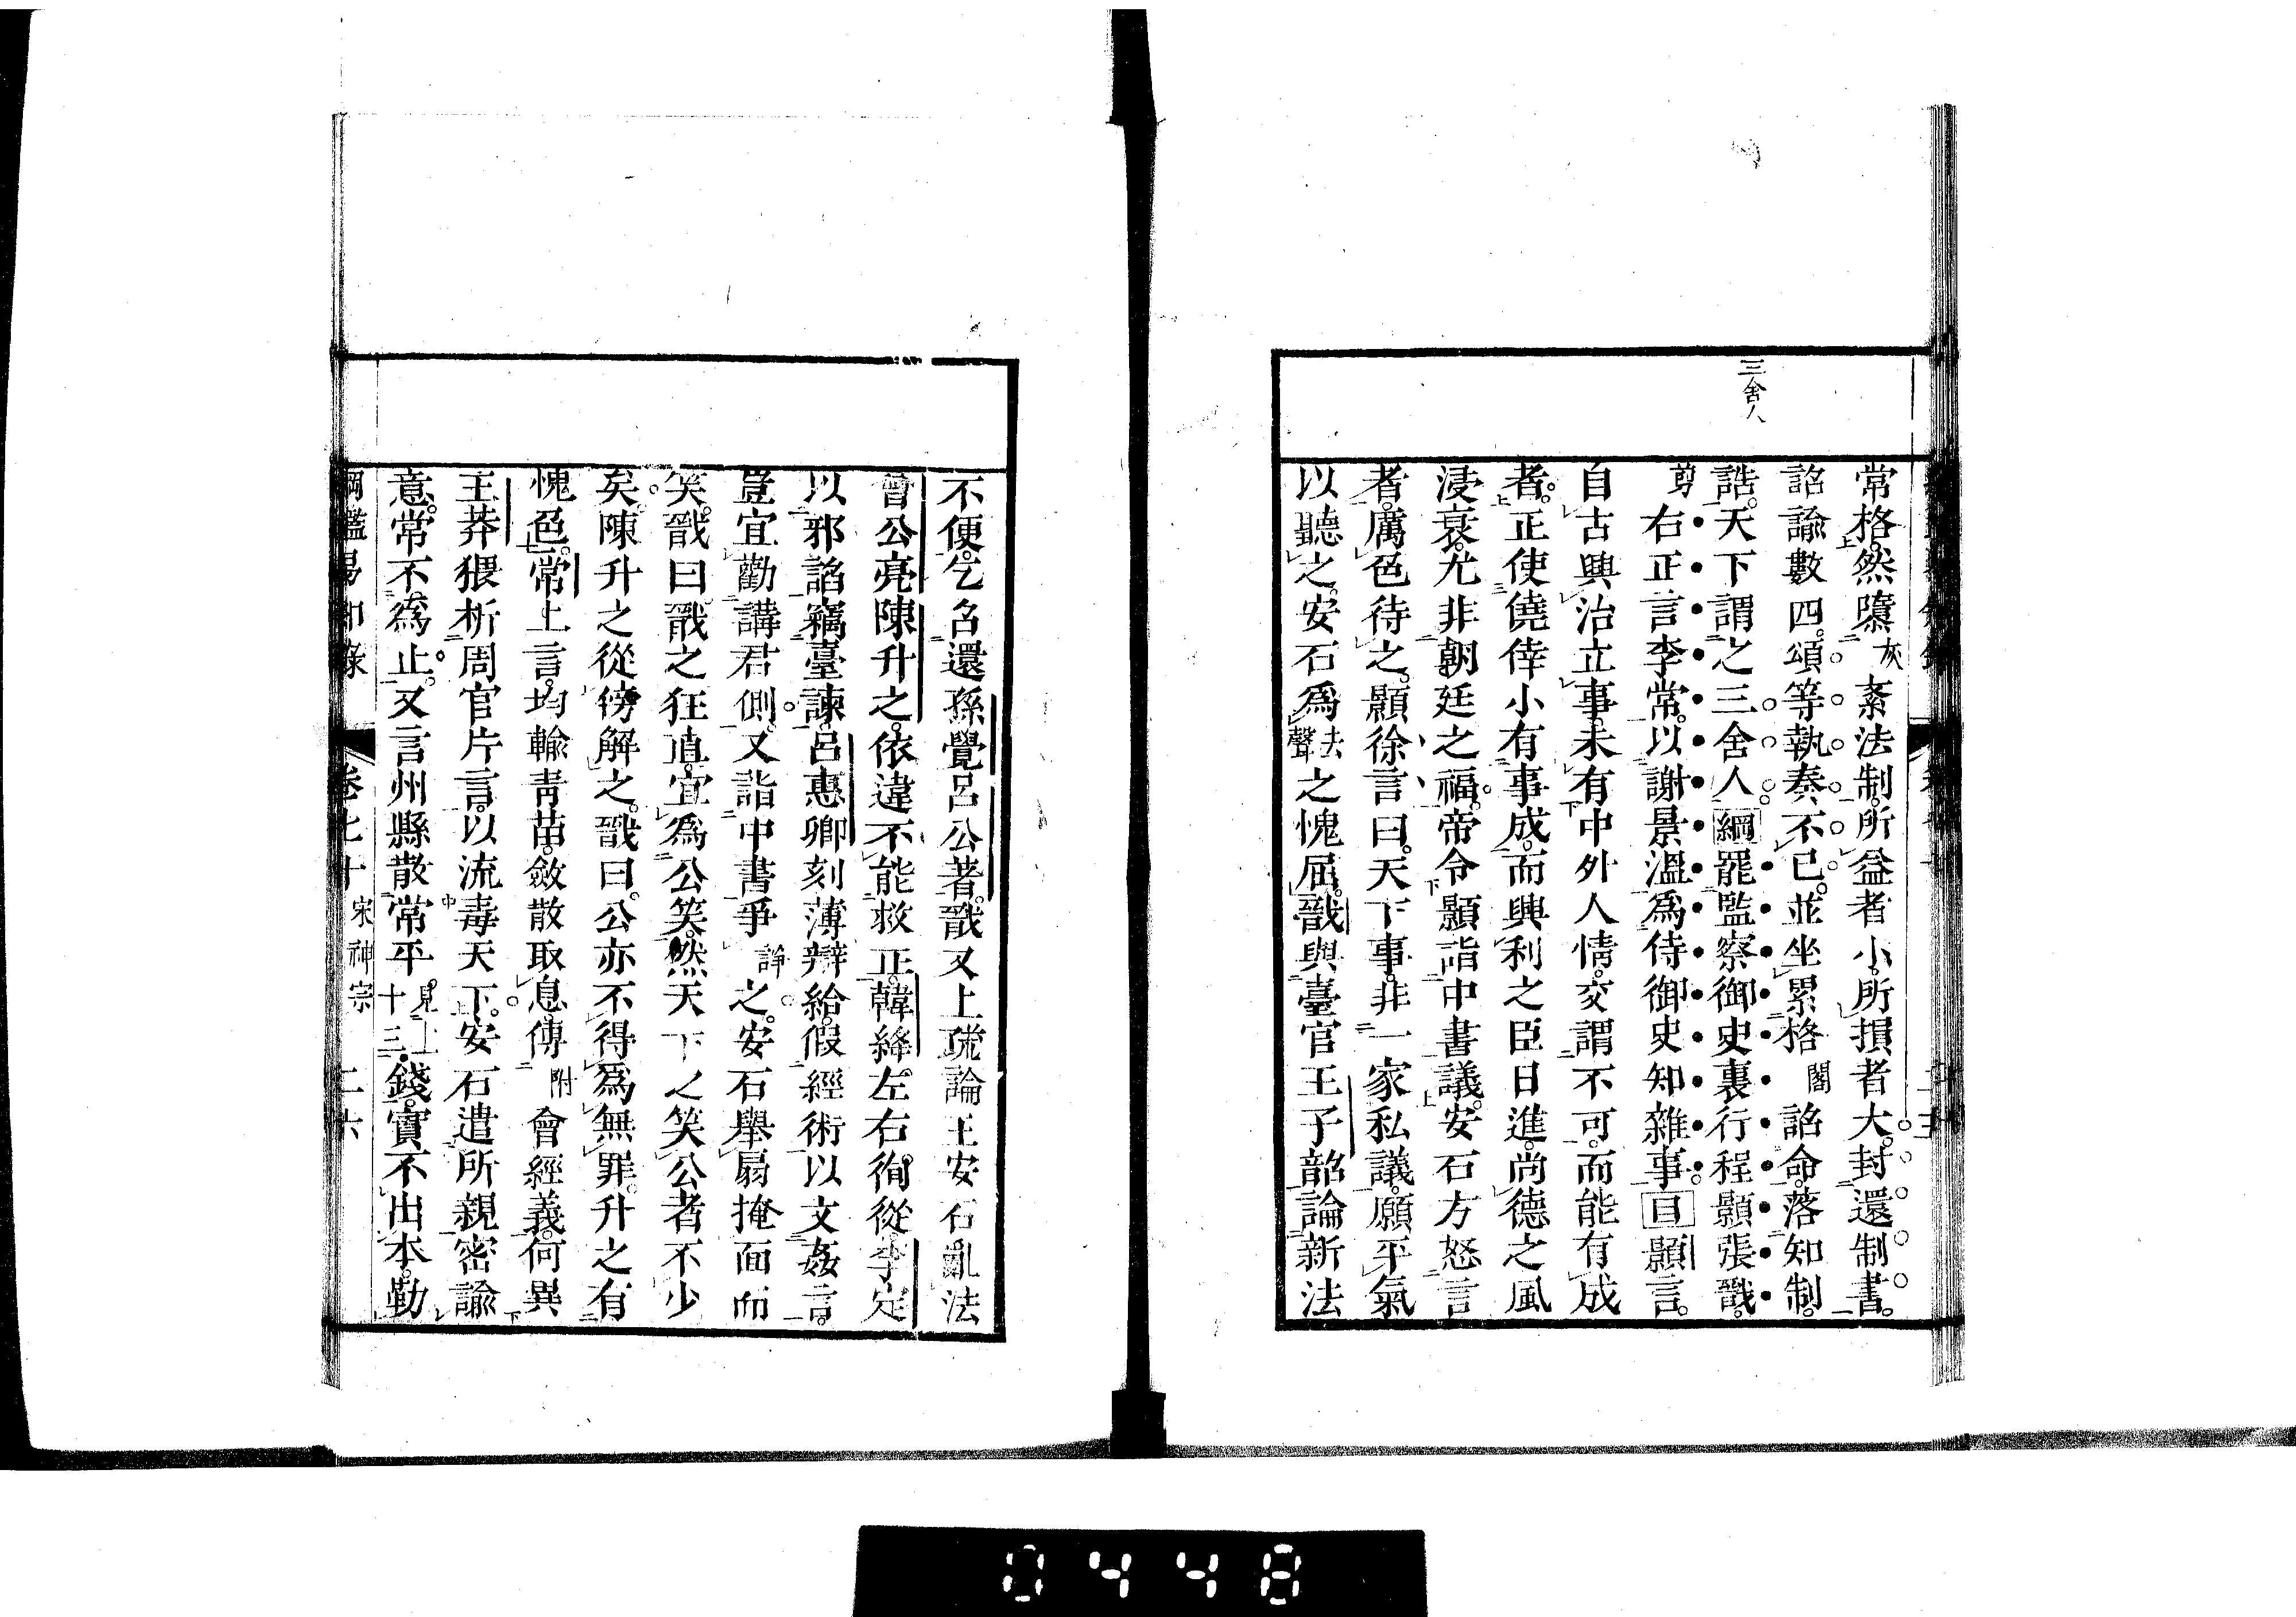 三舍人
常格。然隳灰紊法制。所益者小。所損者大。封還制書。
詔諭數四。頌等執奏不已。並坐累格閣詔命。落知制
誥。天下謂之三舍人綱罷監察御史裏行程顥張戩。
剪右正言李常。以謝景溫爲侍御史知雜事目顥言。
自古興治立事。未有中外人情。交謂不可。而能有成
者。正使僥倖小有事成。而興利之臣日進。尚德之風
浸衰。尤非朝廷之福。帝令顥詣中書議。安石方怒言
者。厲色待之。顥徐言曰。天下事。非一家私議。願平氣
以聽之。安石爲去聲之愧屈。戩與臺官王子韶論新法
不便。乞召還孫覺呂公著。戩又上疏論王安石亂法
曾公亮陳升之。依違不能救正。韓絳。左右徇從。李定
以邪諂竊臺諫。呂惠卿刻薄辯給。假經術以文姦言。
豈宜勸講君側。又詣中書爭諍之。安石舉扇掩面而
笑。戩曰戩之狂直。宜爲公笑。然天下之笑公者不少
矣。陳升之從傍解之。戩曰。公亦不得爲無罪。升之有
愧色。常上言。均輸青苗。斂散取息。傅附會經義。何異
王莽猥析周官片言。以流毒天下。安石遣所親密諭
意。常不爲止。又言州縣散常平見上十三錢。實不出本。勤
綱鑑易知錄 卷七十 宋神宗 二六